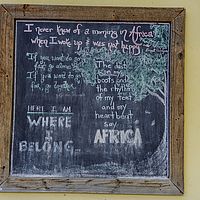 I never knew of a morning in Africa
when I woke up & was not happy
"If you want to go
fast, go alone. If
If you want to go
far, go together."
HERE I AM
WHERE
I
BELONG...
The dust
on my
boots and
the rhythm
of my feet
and my
heartbeat
say
AFRICA